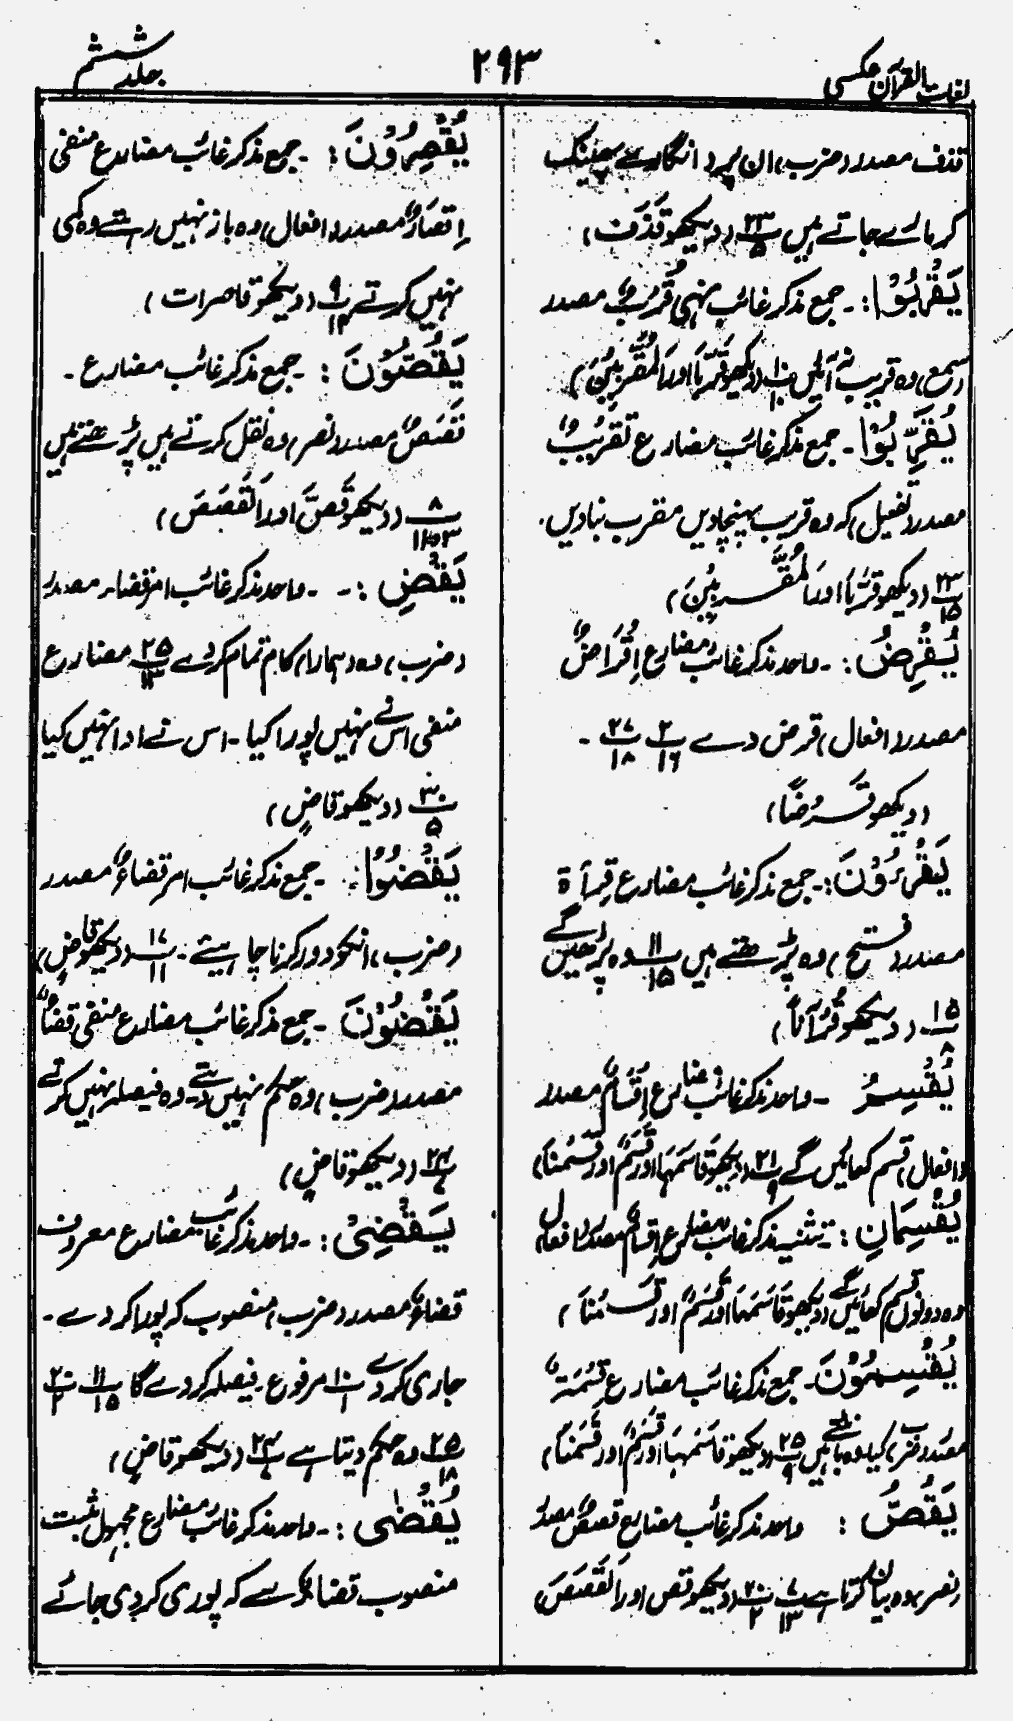 لغات القرآن عکسی
۲۹۳
جلد ششم
قذف مصدر (ضرب) ان پر انگارے پھینک
کر مارے جاتے ہیں ۲۳/۵ (دیکھو قَذَفَ)
یَقْرَبُوْا :۔ جمع مذکر غائب نہی قُرْبٌ مصدر
(سمع) وہ قریب نہ آئیں پ ۱۰/۱۰ (دیکھو قَرَّبَا اور اَلْمُقَرَّبِیْنَ)
یُقَرِّبُوْا ۔ جمع مذکر غائب مضارع تَقْرِیْبٌ
مصدر (تفعیل) کہ وہ قریب پہنچادیں مقرب بنادیں۔
۲۳/۱۵ (دیکھو قَرَّبَا اور اَلْمُقَرَّبِیْنَ)
یُقْرِضُ :۔ واحد مذکر غائب مضارع اِقْرَاضٌ
مصدر (افعال) قرض دے ۲/۱۶ ۲۷/۱۸ ۔
(دیکھو قَرْضًا)
یَقْرَءُوْنَ :۔ جمع مذکر غائب مضارع قِرأۃ
مصدر (فتح) وہ پڑھتے ہیں ۱۱/۱۵ وہ پڑھیں گے
۱۵/۸ ۔ (دیکھو قُرْآناً)
یُقْسِمُ ۔ واحد مذکر غائب مضارع اِقْسَامٌ مصدر
(افعال) قسم کھائیں گے ۲۱/۹ (دیکھو قَاسَمَہَا اور قَسَمٌ اور قَسَمْنَا)
یُقْسِمَانِ :۔ تثنیہ مذکر غائب مضارع اِقْسَامٌ مصدر (افعال)
وہ دونوں قسم کھائیں گے (دیکھو قَاسَمَہَا اور قَسَمٌ اور قَسَمْنَا)
یَقْسِمُوْنَ ۔ جمع مذکر غائب مضارع قِسْمَۃٌ
مصدر (ضرب) کیا وہ بانٹتے ہیں ۲۵/۹ (دیکھو قَاسَمَہَا اور قَسَمٌ اور قَسَمْنَا)
یَقُصُّ : واحد مذکر غائب مضارع قصصٌ مصدر
(نصر) وہ بیان کرتا ہے ۷/۱۳ ۲۰/۲ (دیکھو قص اور اَلْقَصَصَ)
یُقْصِرُوْنَ :۔ جمع مذکر غائب مضارع منفی
اِقصَارٌ مصدر (افعال) وہ باز نہیں رہتے وہ کمی
نہیں کرتے ۹/۱۴ (دیکھو قاصرات)
یَقُصُّوْنَ :۔ جمع مذکر غائب مضارع ۔
قَصَصٌ مصدر (نصر) وہ نقل کرتے ہیں پڑھتے ہیں
۸ (دیکھو قَصَّ اور اَلْقَصَصَ)
یَقْضِ :۔ ۔ واحد مذکر غائب امر قضاء مصدر
(ضرب) وہ ہمارا کام تمام کردے ۲۵/۱۳ مضارع
منفی اس نے نہیں پورا کیا ۔ اس نے ادا نہیں کیا
۳۰/۵ (دیکھو قاضٍ)
یَقْضُوْا : ۔ جمع مذکر غائب امر قضاءٌ مصدر
(ضرب) انکو دور کرنا چاہیئے ۔ ۱۷/۱۱ (دیکھو قاضٍ)
یَقْضُوْنَ ۔ جمع مذکر غائب مضارع منفی قضاءٌ
مصدر (ضرب) وہ حکم نہیں دیتے ۔ وہ فیصلہ نہیں کرتے
(دیکھو قاضٍ)
یَقْضِیْ :۔ واحد مذکر غائب مضارع معروف
قضاءٌ مصدر (ضرب) منصوب کہ پورا کر دے ۔
جاری کردے ۱۰/۱ مرفوع ۔ فیصلہ کر دے گا ۱۱/۱۵ ۲۰/۲
۲۵/۱۸ وہ حکم دیتا ہے (دیکھو قاضٍ)
یُقْضٰی :۔ واحد مذکر غائب مضارع مجہول مثبت
منصوب قضاءٌ سے کہ پوری کر دی جائے